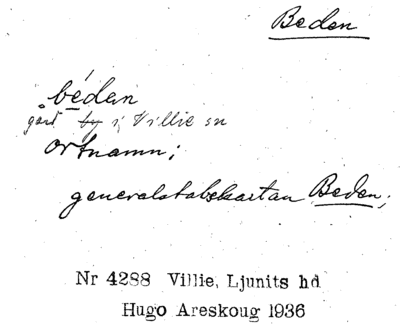 Beden
béden
gård by i Villie sn
ortnamn;
generalstabskartan Beden;
Nr 4288 Villie, Ljunits hd
Hugo Areskoug 1936